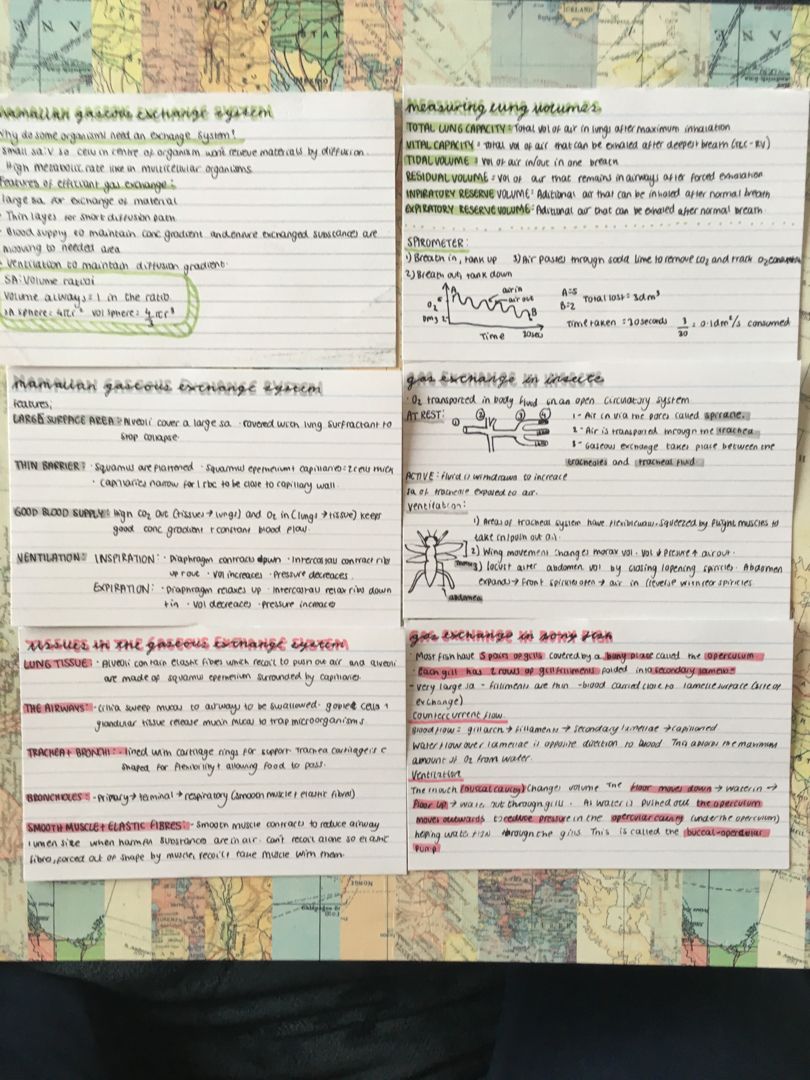 mammalian gaseous exchange system
Why do some organisms need an exchange system?
small sa:v so cells in centre of organism won't receive materials by diffusion.
High metabolic rate like in multicellular organisms.
Features of efficient gas exchange:
large sa for exchange of material
Thin layer for short diffusion path
Blood supply to maintain conc gradient and ensure exchanged substances are
moving to needed area
Ventilation to maintain diffusion gradient.
SA:Volume ratio:
Volume always = 1 in the ratio
SA sphere = 4πr² vol sphere = 4/3 πr³
measuring lung volumes
TOTAL LUNG CAPACITY: Total vol of air in lungs after maximum inhalation
VITAL CAPACITY: Total vol of air that can be exhaled after deepest breath (TLC - RV)
TIDAL VOLUME: Vol of air in/out in one breath
RESIDUAL VOLUME: Vol of air that remains in airways after forced exhalation
INPIRATORY RESERVE VOLUME: Aditional air that can be inhaled after normal breath
EXPIRATORY RESERVE VOLUME: Aditional air that can be exhaled after normal breath
SPIROMETER:
1) Breath in, tank up 3) Air passes through soda lime to remove CO2 and track O2 consumption
2) Breath out, tank down
A air in A=5 Total lost = 3dm³
O2 air out B=2
2 B Time taken = 30seconds 3/30 = 0.1dm³/s consumed
Time 30sec
mammalian gaseous exchange system
Features:
LARGE SURFACE AREA: Alveoli cover a large sa · covered with lung surfractant to
stop collapse.
THIN BARRIER: · Squamus are flattened · Squamus epethelium + capillaries = 2 cells thick
· Capillaries narrow for 1 rbc to be close to capillary wall.
GOOD BLOOD SUPPLY: High CO2 out (tissues → lungs) and O2 in (lungs → tissue) keeps
good conc gradient + constant blood flow.
VENTILATION: INSPIRATION: · Diaphragm contracts down · Intercostal contract ribs
up + out · Vol increases · Pressure decreases.
EXPIRATION: · Diaphragm relaxes up · Intercostal relax ribs down
+ in · Vol decreases · Pressure increase
gas exchange in insects
· O2 transported in body fluid in an open circulatory system
AT REST: 1 2 3 4 1 - Air in via the pores called spiracle.
2 - Air is transported through the trachea
3 - Gaseous exchange takes place between the
tracheoles and tracheal fluid.
ACTIVE: fluid is withdrawn to increase
sa of tracheole exposed to air.
Ventilation:
1) Areas of tracheal system have flexible walls. Squeezed by flight muscles to
take in/push out air.
2) Wing movement changes thorax vol. Vol ↓ Pressure ↑ air out.
thorax 3) locust alter abdomen vol by closing/opening spiricles. Abdomen
expands → front spiricle open → air in (reverse with rear spiricles.
abdomen
TISSUES IN THE GASEOUS EXCHANGE SYSTEM
LUNG TISSUE: · Alveoli contain elastic fibres which recoil to push out air and alveoli
are made of squamus epethelium surrounded by capillaries.
THE AIRWAYS: · Cilia sweep mucus to airways to be swallowed. goblet cells +
glandular tissue release mucin mucus to trap microorganisms.
TRACHEA + BRONCHI: - lined with cartilage rings for support. Trachea cartilage is c
shaped for flexibility + allowing food to pass.
BRONCHIOLES: · Primary → terminal → respiratory (smooth muscle + elastic fibres)
SMOOTH MUSCLE + ELASTIC FIBRES: - Smooth muscle contracts to reduce airway
lumen size when harmful substances are in air. Can't recoil alone so elastic
fibres, forced out of shape by muscle, recoil + take muscle with them.
gas exchange in bony fish
· Most fish have 5 pairs of gills covered by a bony plate called the operculum
· Each gill has 2 rows of gill filliments folded into secondary lamellae
· Very large sa - filliments are thin - blood carried close to lamellae surface (site of
exchange)
Countercurrent flow.
Blood flow: gill arch → fillaments → secondary lamellae → capillaries
Water flow over lamellae is opposite direction to blood. This allows the maximum
amount of O2 from water.
Ventilation
The mouth (buccal cavity) changes volume. The floor moves down → water in →
floor up → water out through gills. As water is pushed out the operculum
moves outwards to reduce pressure in the opercular cavity (under the operculum)
helping water flow through the gills. This is called the buccal-opercular
pump